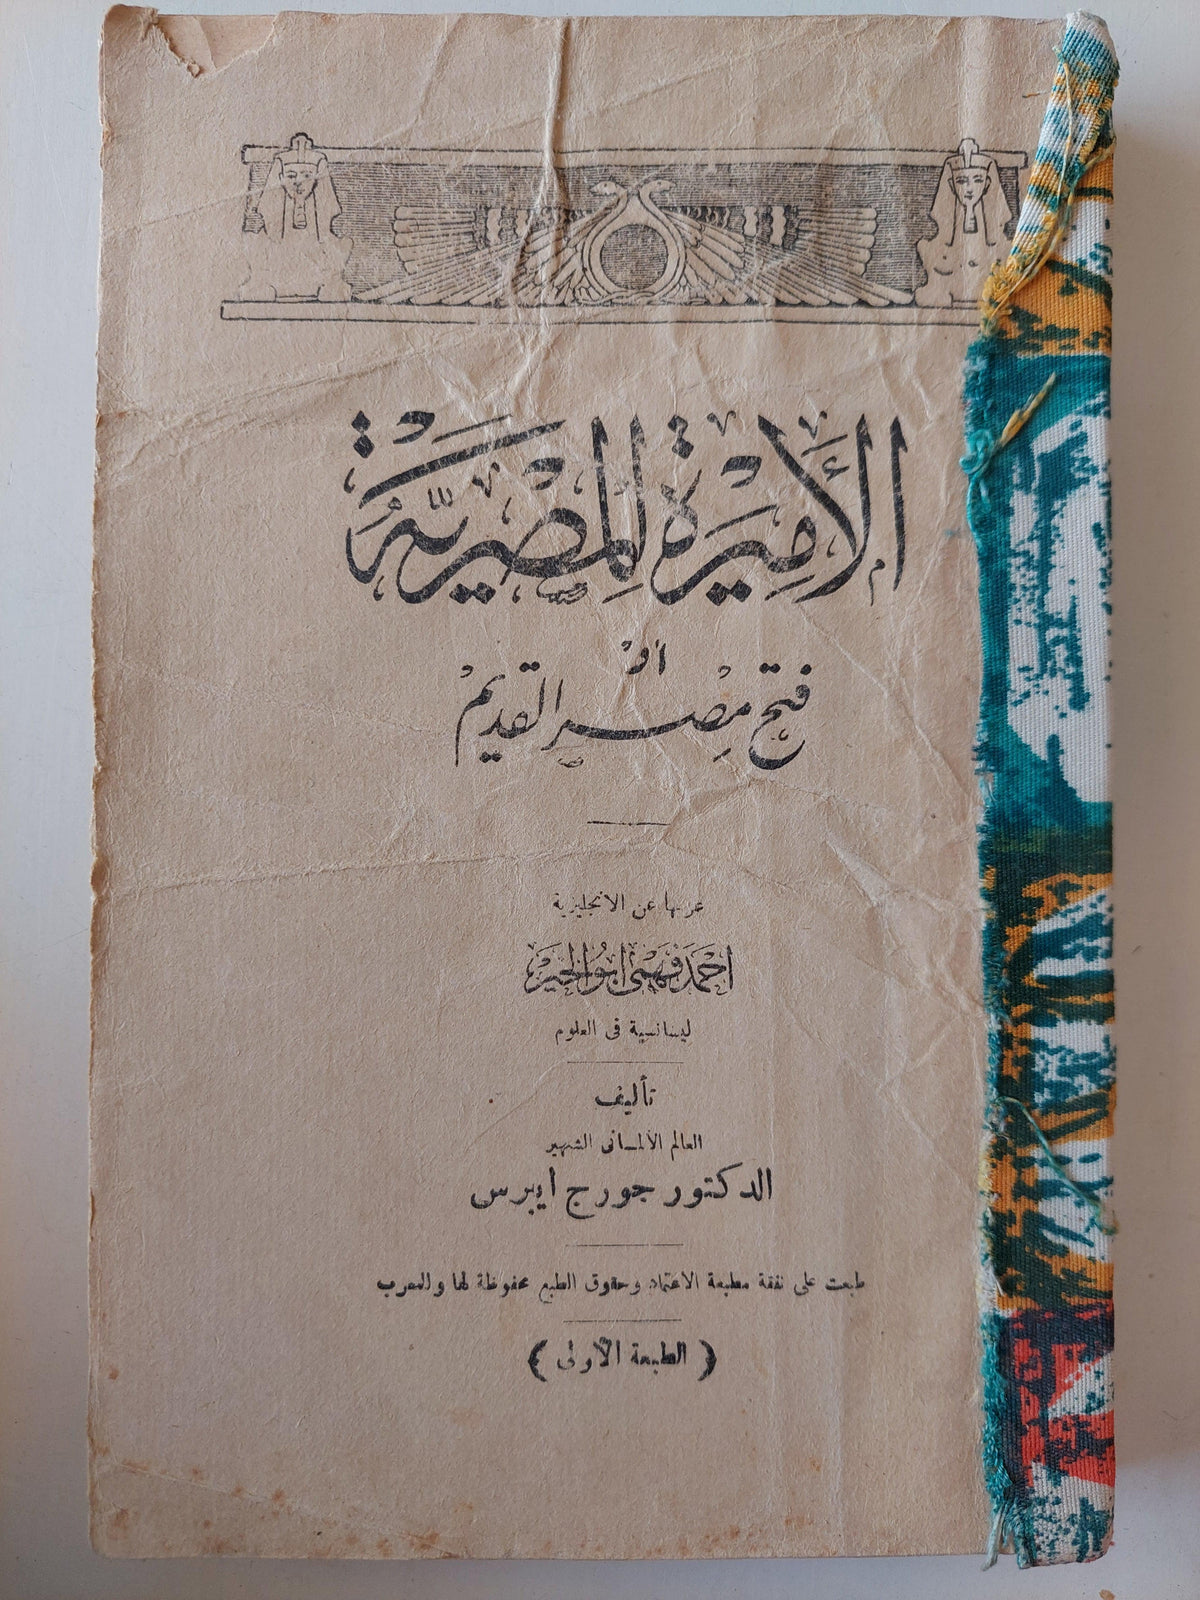 الأميرة المصرية
أو
فتح مصر القديم
عربها عن الانجليزية
احمد فهمى ابو الخير
ليسانسية فى العلوم
تأليف
العالم الألمـانى الشهير
الدكتور جورج ايبرس
طبعت على نفقة مطبعة الاعتماد وحقوق الطبع محفوظة لها وللمعرب
( الطبعة الأولى )